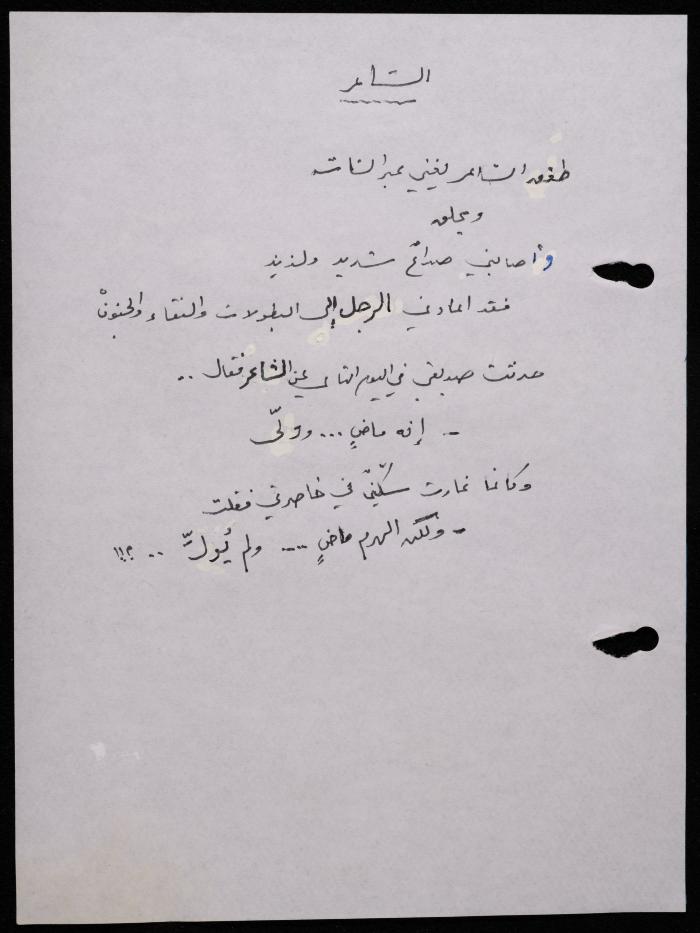 الشاعر
طفق الشاعر يغني عبر الشاشة
ويحلق
وأصابني صداعٌ شديد ولذيذ
فقد أعادني الرجل إلى البطولات والنقاء والجنون
حدثت صديقي في اليوم التالي عن الشاعر فقال ..
- إنه ماضٍ ... وولّى
وكأنما غارت سكّينٌ في خاصرتي فقلت
- ولكن الهرم ماضٍ .... ولم يُولِّ .. ؟!!